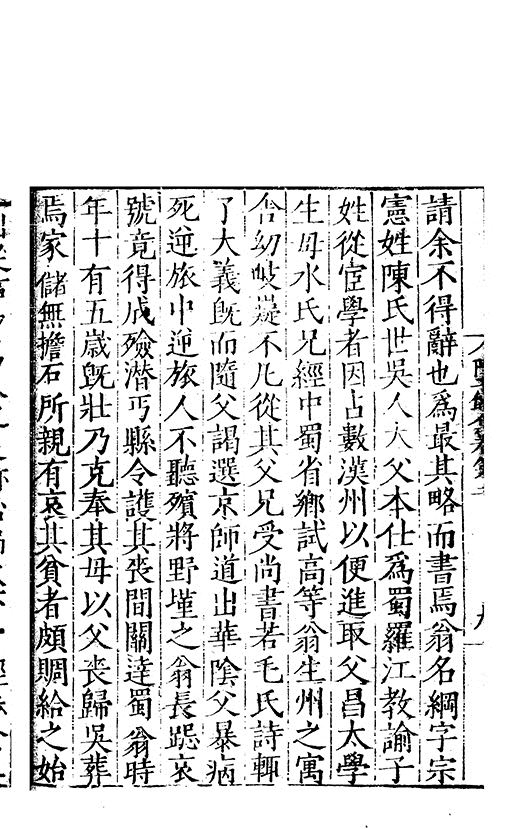 請余不得辭也爲最其略而書焉翁名綱字宗
憲姓陳氏世吳人大父本仕爲蜀羅江教諭子
姓從宦學者因占數漢州以便進取父昌太學
生母水氏兄經中蜀省鄉試高等翁生州之寓
舍幼岐嶷不凡從其父兄受尚書若毛氏詩輒
了大義旣而隨父謁選京師道出華陰父暴病
死逆旅中逆旅人不聽殯將野堇之翁長跽哀
號竟得成殮潛丐縣令護其喪間關達蜀翁時
年十有五歲旣壯乃克奉其母以父喪歸吳葬
焉家儲無擔石所親有哀其貧者頗賙給之始